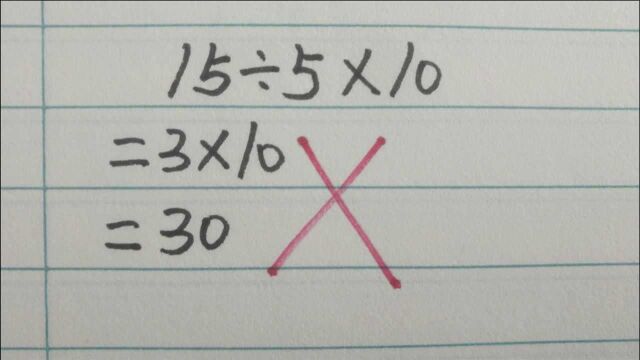 15÷5×10
=3×10
=30